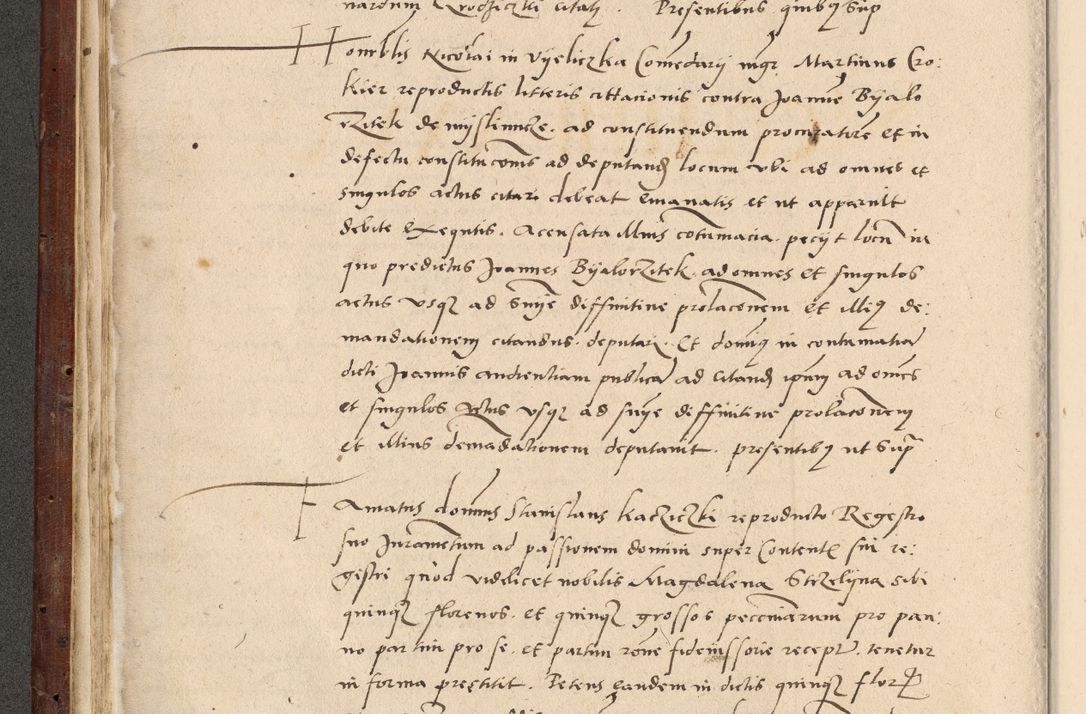 nardum Grodziczki citatz. Presentibus quibus sup
Honrblis Nicolai in Vyeliczka Comedarij mgr. Martinus Cro:
kier reproductis litteris cittacionis contra Joanne Byalo
rzitek de myslimicze. ad constituendum procuratore et in
defectu constitucionis ad deputand locum ubi ad omnes et
singulos actus citari debeat emanatis et ut apparuit
debite exequtis. Acensata illius cotumacia. peciit locu in
quo predictus Joannes Byalorzitek. ad omnes et singulos
actus usqz ad Snie diffinitive prolaconem et illiq de:
mandationem citandus. deputari. Et domq in contumatia
dicti Joannis audientiam publica ad citand ipm ad omes
et singulos Actus usqz ad snie diffinitive prolaconem
et illius demadationem deputavit. presentibq ut Sup
Famatus domus Stanislaus kacziczki reproducto Regestro
suo Jurametum ad passionem domini super Content sui re:
gestri quod videlicet nobilis Magdalena Strzelyna sibi
quinqz florenos. et quinqz grossos pecciniarum pro pan:
no partim pro se. et partim rone fideiussorie recept. tenetur
in forma prestitit. Petens eandem in dictis quinqz flor